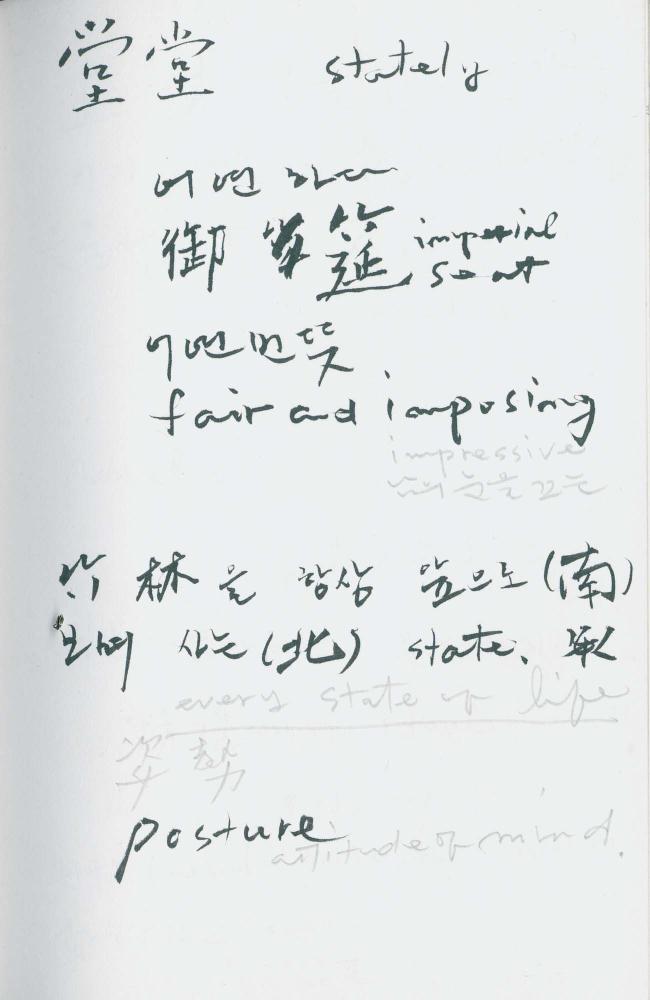 堂堂 stately
어연 하다
御 筵 imperial
seat
어연번뜻
fair and imposing
impressive
남의 눈을 끄는
竹林을 항상 앞으로 (南)
보며 사는 (北) state.
every state of life
姿勢
posture
attitude of mind.